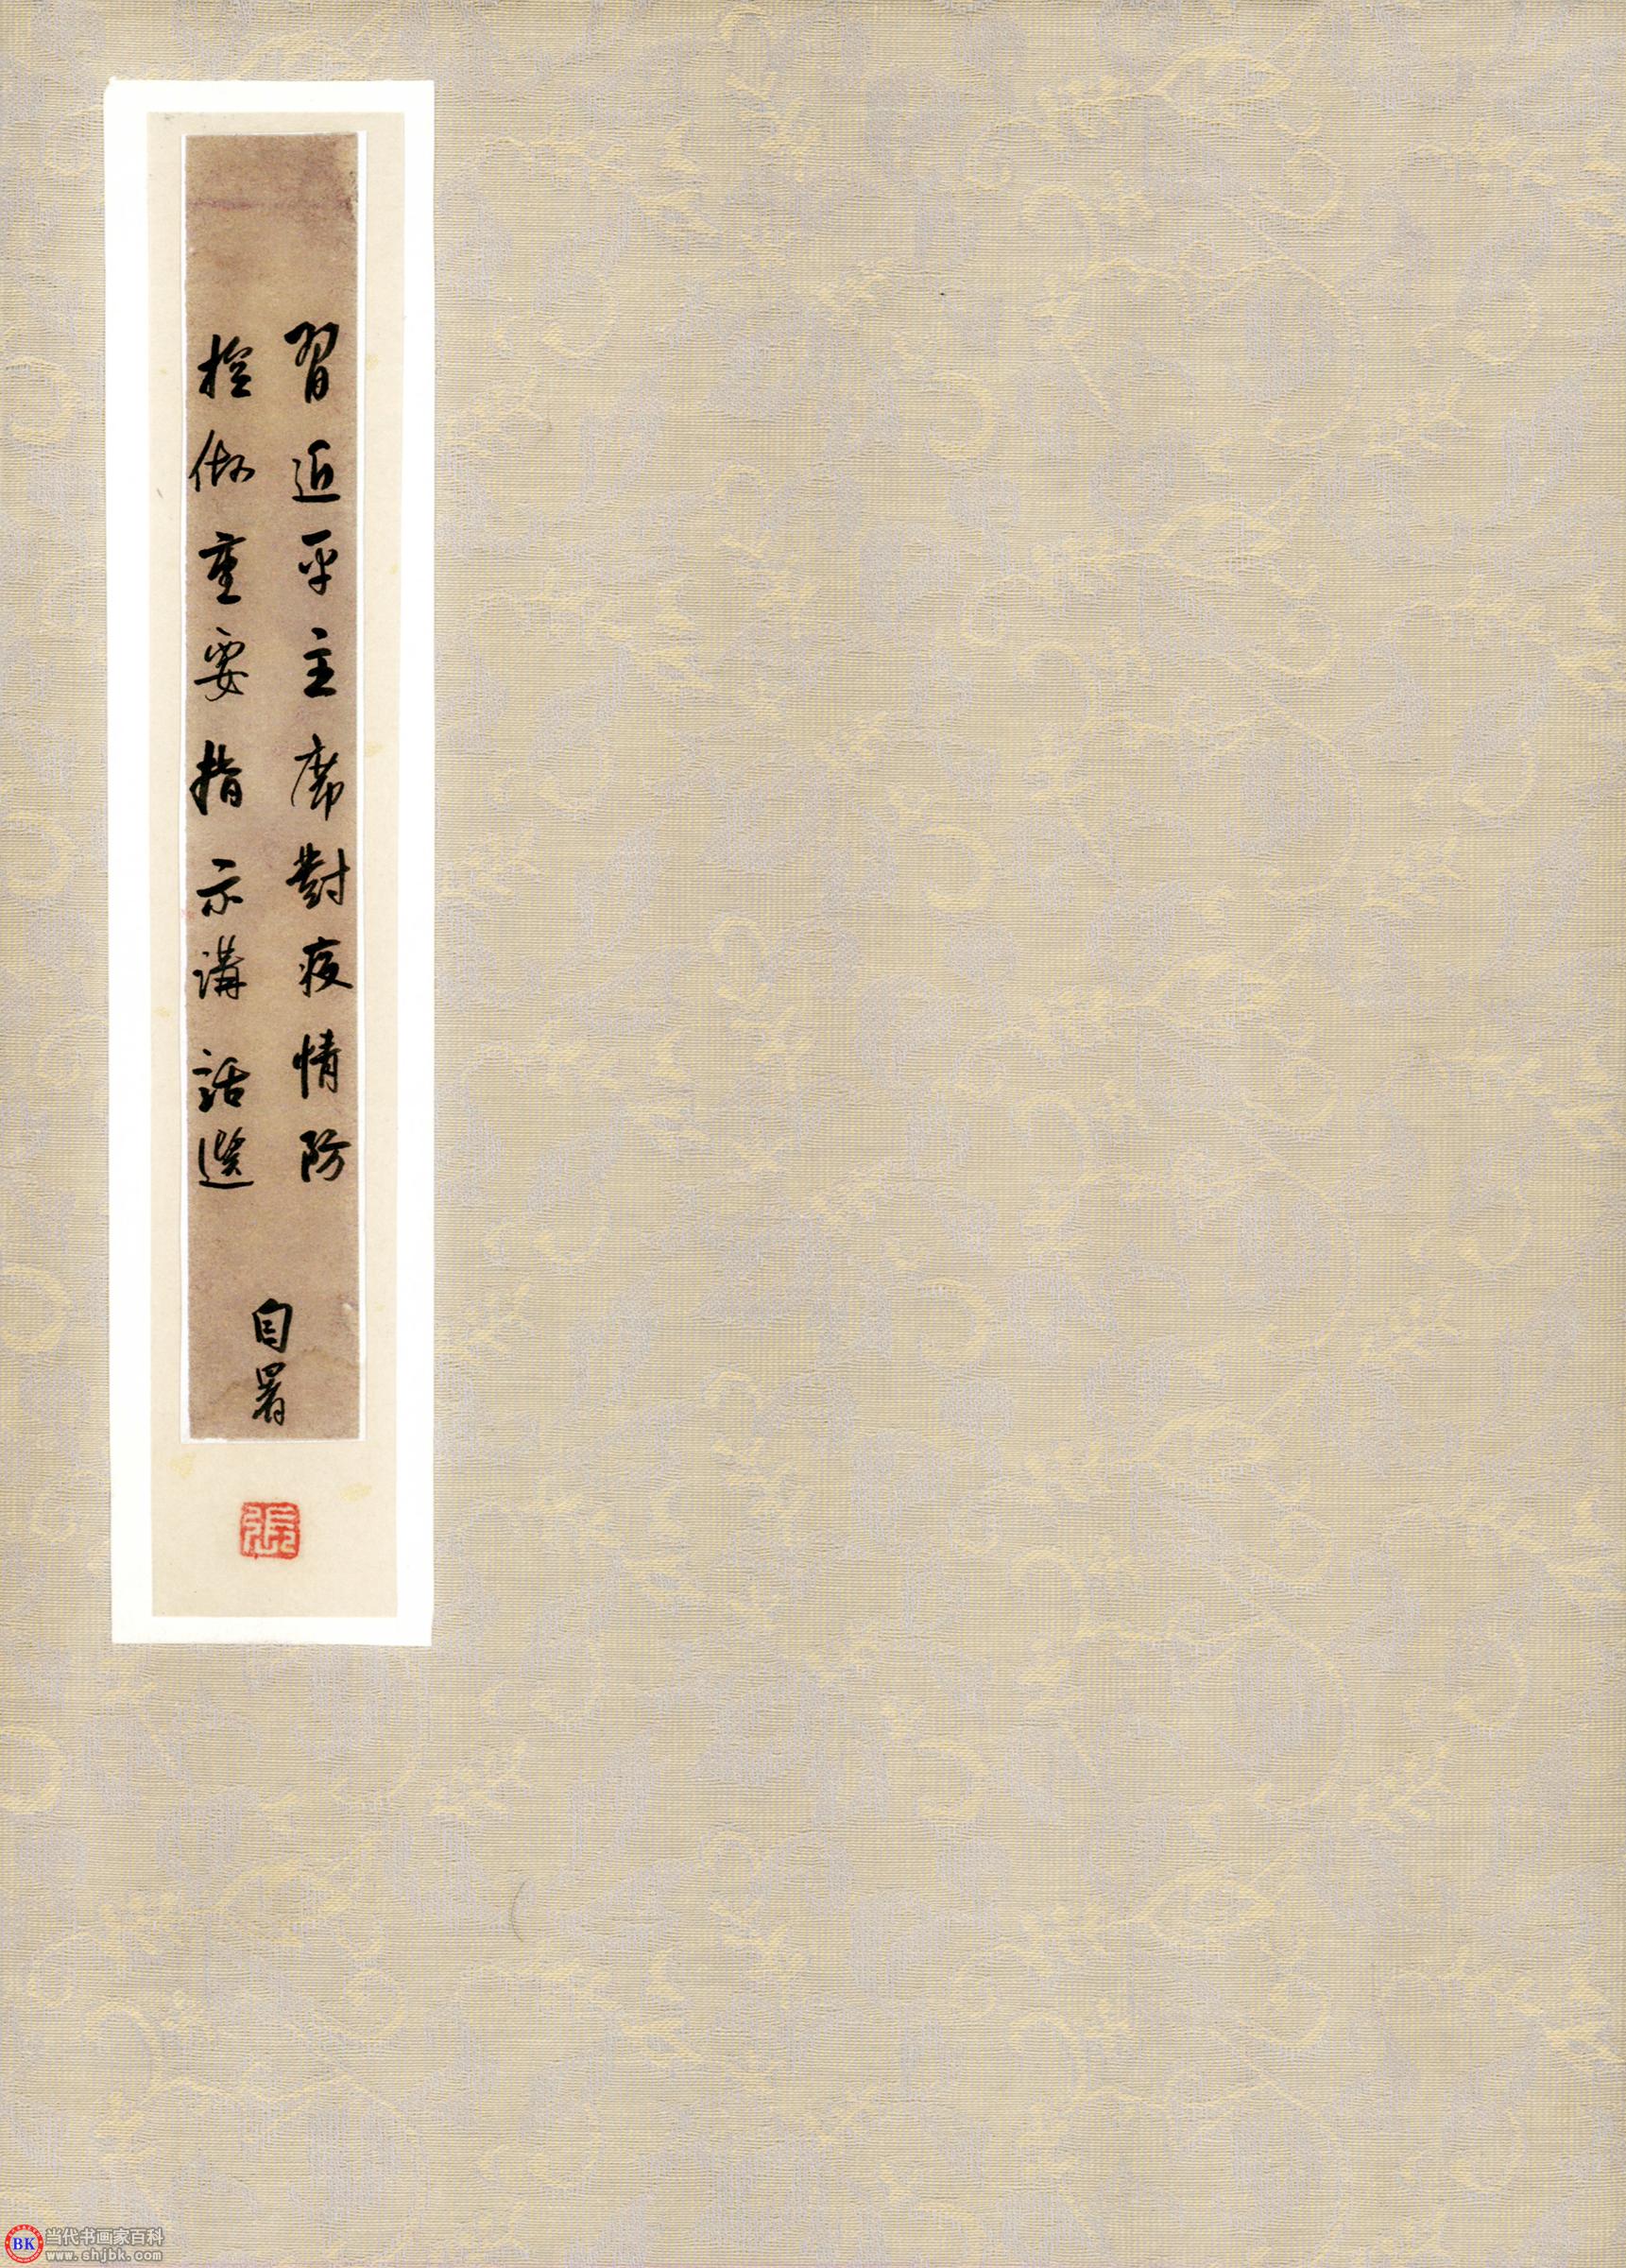 習近平主席對疫情防
控做重要指示講話選
自署
張
BK 当代书画家百科
www.shjbk.com